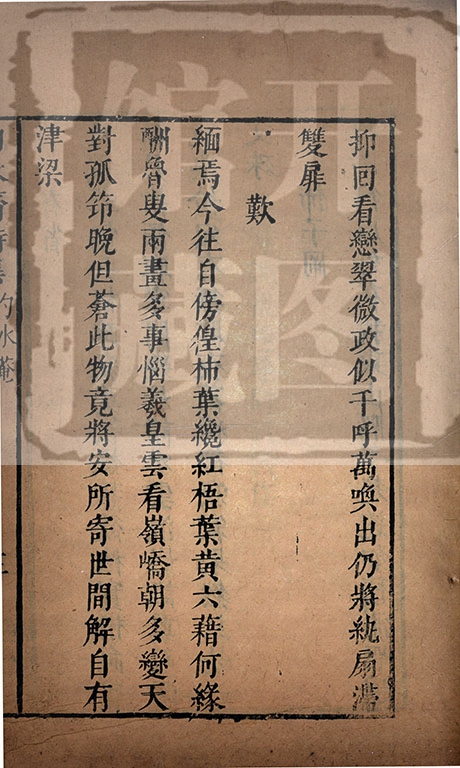 抑回看戀翠微政似千呼萬喚出仍將紈扇滯
雙扉
歎
緬焉今往自傍徨柿葉纔紅梧葉黄六藉何緣
酬魯叟兩畫多事惱羲皇雲看嶺嶠朝多變天
對孤笻晚但蒼此物竟將安所寄世間解自有
津梁
水菴
開圖
館藏